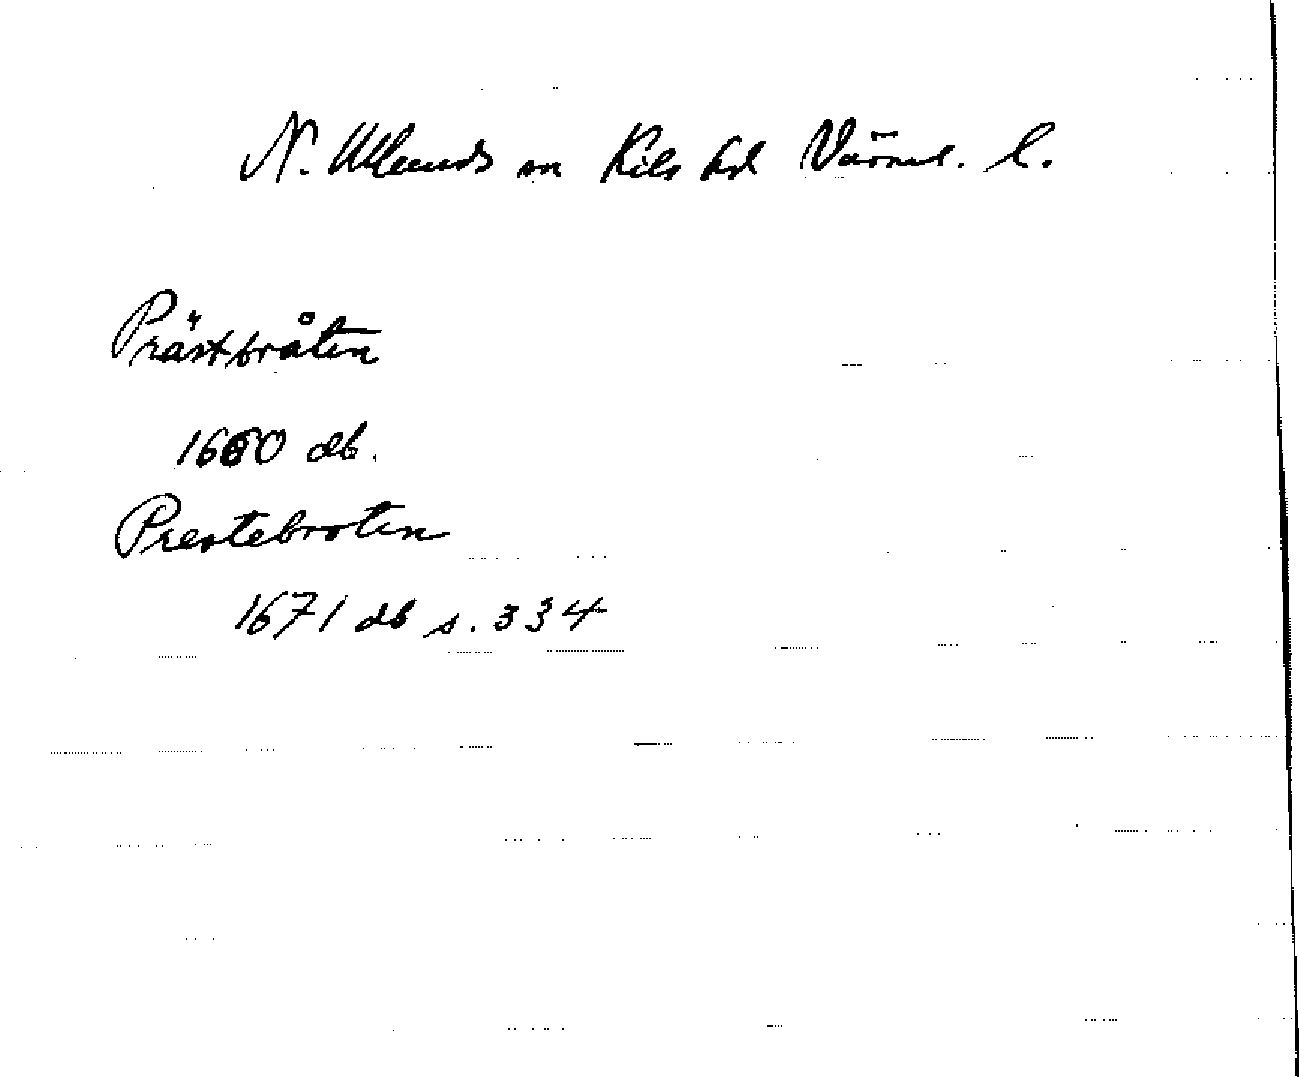 N. Ulleruds sn Kils hd Värml. l.
Prästbråten
1660 db.
Prestebroten
1671 db s. 334